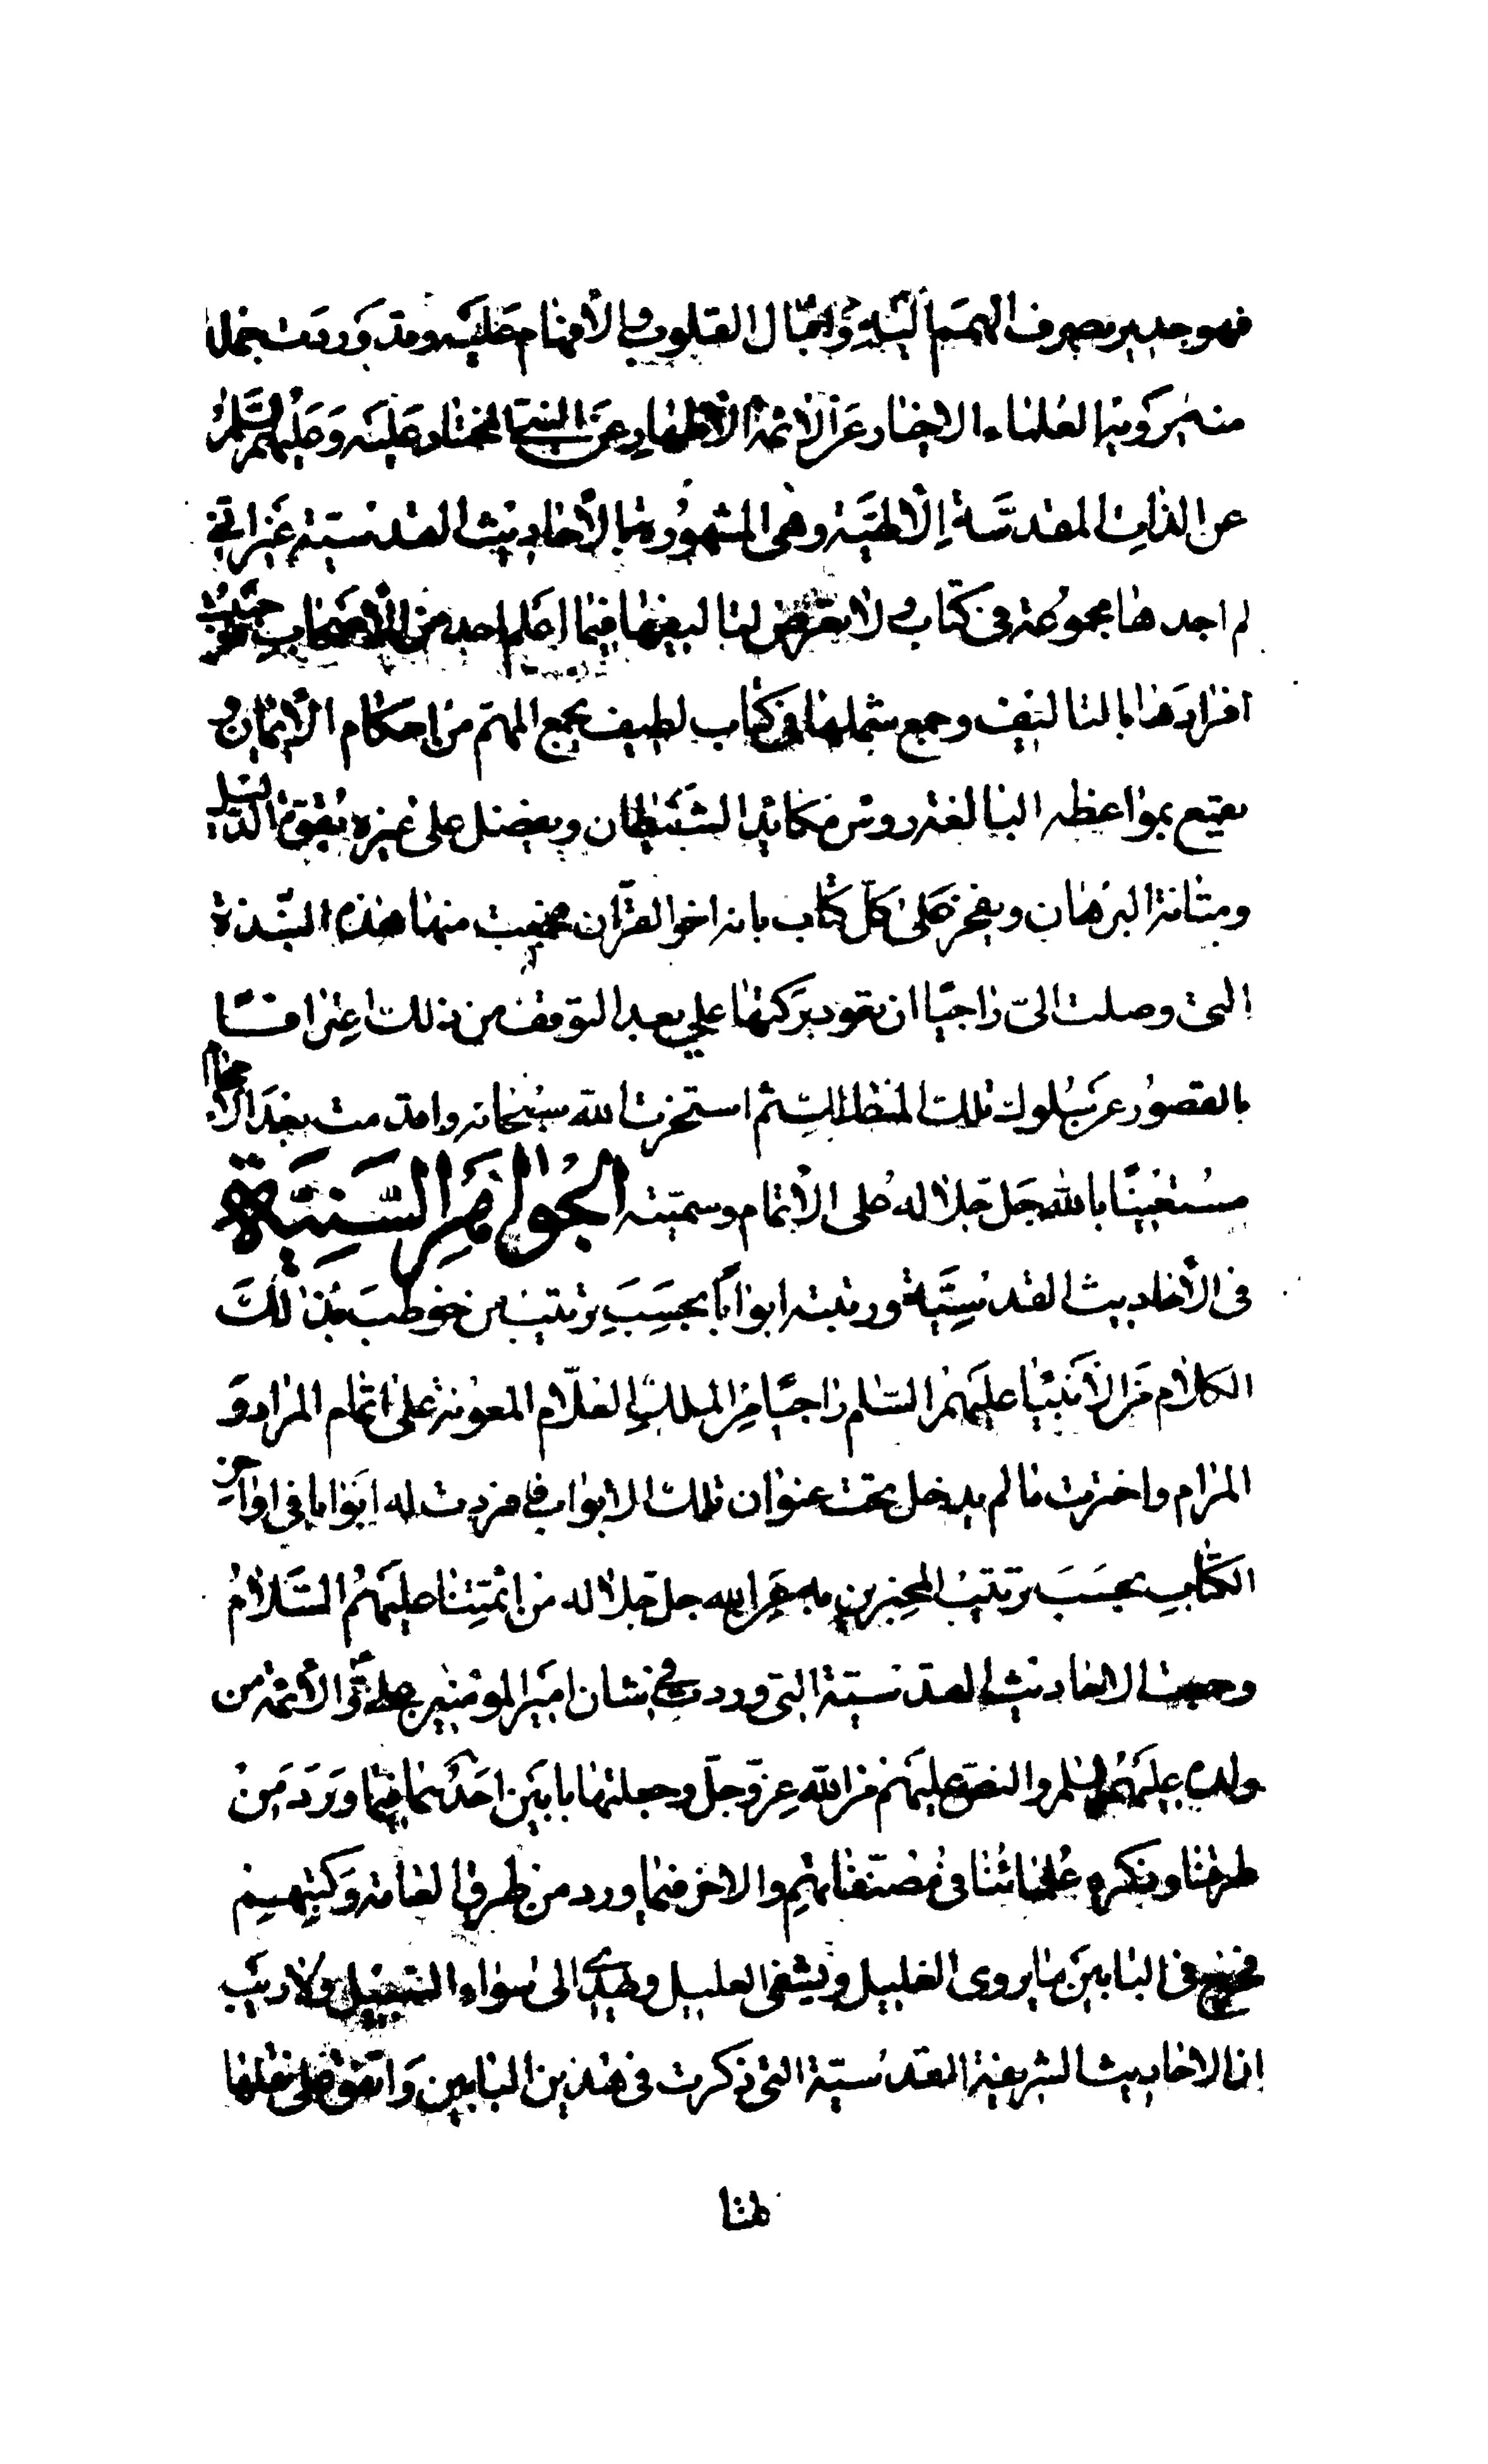 فهو جدير بصرف الهمم اليه واقبال القلوب والافهام عليه وقد وردت جملة
منه يرويها العلماء الاخيار عن الائمة الاطهار عن النبي المختار عليه وعليهم السلام
عن الذات المقدسة الالهية وهي المشهورة بالاحاديث القدسية غير اني
لم اجدها مجموعة في كتاب ولا تعرض لتاليفها فيما اعلم احد من الاصحاب
افرادها بالتاليف وجمع شملها في كتاب لطيف يجمع المهم من احكام الايمان و
يقمع بمواعظه البالغة رؤس مكائد الشيطان ويفضل على غيره بقوة الدليل
ومتانة البرهان ويفخر على كل كتاب بانه اخو القرآن فجمعت منها هذه النبذة
التي وصلت الي راجيا ان تعود بركتها علي بعد التوقف من ذلك اعترافا
بالقصور عن سلوك تلك المسالك ثم استخرت الله سبحانه واقدمت بعد الاحجام
مستعينا بالله جل جلاله على الاتمام وسميته الجواهر السنية
في الاحاديث القدسية ورتبته ابوابا بحسب ترتيب من خوطب بذلك
الكلام من الانبيا عليهم السلم راجيا من الملك العلام المعونة على اتمام المراد و
المرام واخرت ما لم يدخل تحت عنوان تلك الابواب فافردت له ابوابا في اواخر
الكتاب بحسب ترتيب المخبرين به عن الله جل جلاله من ائمتنا عليهم السلام
وجمعت الاحاديث القدسية التي وردت في شان امير المومنين علي والائمة من
ولده عليهم السلم والنص عليهم من الله عز وجل وجعلتها بابين احدهما فيما ورد من
طرقنا وذكره علمائنا في مصنفاتهم والاخر فيما ورد من طرق العامة وكتبهم
فخرج في البابين ما يروي الغليل ويشفي العليل ويهدي الى سواء السبيل ولا ريب
ان الاحاديث الشريفة القدسية التي ذكرت في هذين البابين واتفق على نقلها